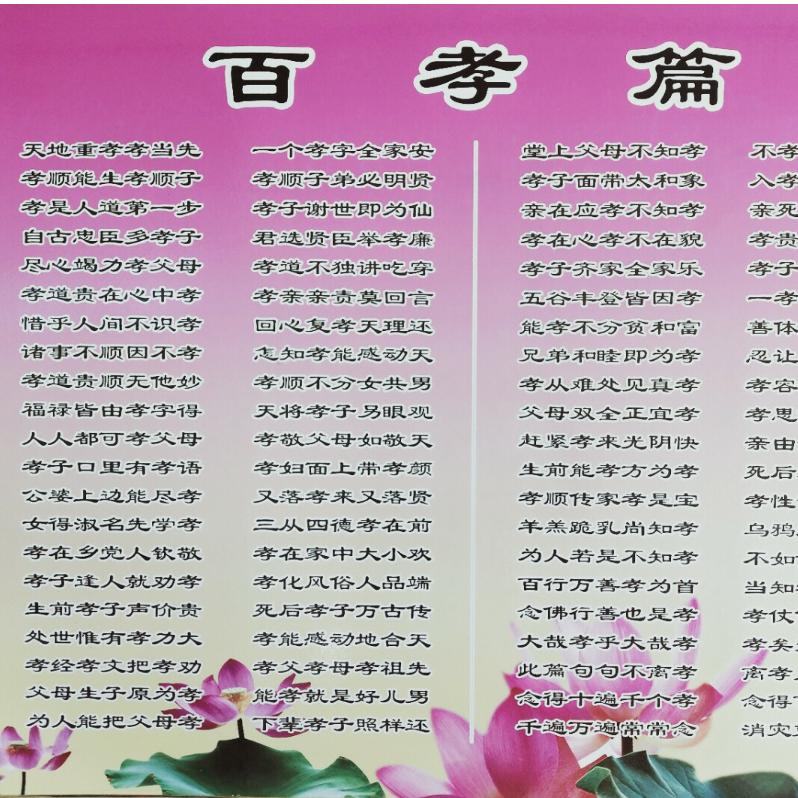 百孝篇
天地重孝孝当先 一个孝字全家安 堂上父母不知孝 不孝
孝顺能生孝顺子 孝顺子弟必明贤 孝子面带太和象 入孝
孝是人道第一步 孝子谢世即为仙 亲在应孝不知孝 亲死
自古忠臣多孝子 君选贤臣举孝廉 孝在心孝不在貌 孝贵
尽心竭力孝父母 孝道不独讲吃穿 孝子齐家全家乐 孝子
孝道贵在心中孝 孝亲亲责莫回言 五谷丰登皆因孝 一孝
惜乎人间不识孝 回心复孝天理还 能孝不分贫和富 善体
诸事不顺因不孝 怎知孝能感动天 兄弟和睦即为孝 忍让
孝道贵顺无他妙 孝顺不分女共男 孝从难处见真孝 孝容
福禄皆由孝字得 天将孝子另眼观 父母双全正宜孝 孝思
人人都可孝父母 孝敬父母如敬天 赶紧孝来光阴快 亲由
孝子口里有孝语 孝妇面上带孝颜 生前能孝方为孝 死后
公婆上边能尽孝 又落孝来又落贤 孝顺传家孝是宝 孝性
女得淑名先学孝 三从四德孝在前 羊羔跪乳尚知孝 乌鸦
孝在乡党人钦敬 孝在家中大小欢 为人若是不知孝 不如
孝子逢人就劝孝 孝化风俗人品端 百行万善孝为首 当知
生前孝子声价贵 死后孝子万古传 念佛行善也是孝 孝仗
处世惟有孝力大 孝能感动地合天 大哉孝乎大哉孝 孝矣
孝经孝文把孝劝 孝父孝母孝祖先 此篇句句不离孝 离孝
父母生子原为孝 能孝就是好儿男 念得十遍千个孝 念得
为人能把父母孝 下辈孝子照样还 千遍万遍常常念 消灾